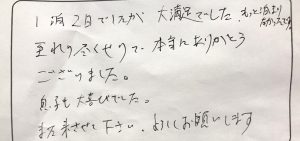 1泊2日でしたが 大満足でした。もっと泊まり
たかったです
至れり尽くせりで、本当にありがとう
ございました。
息子も大喜びでした。
また来させて下さい。よろしくお願いします